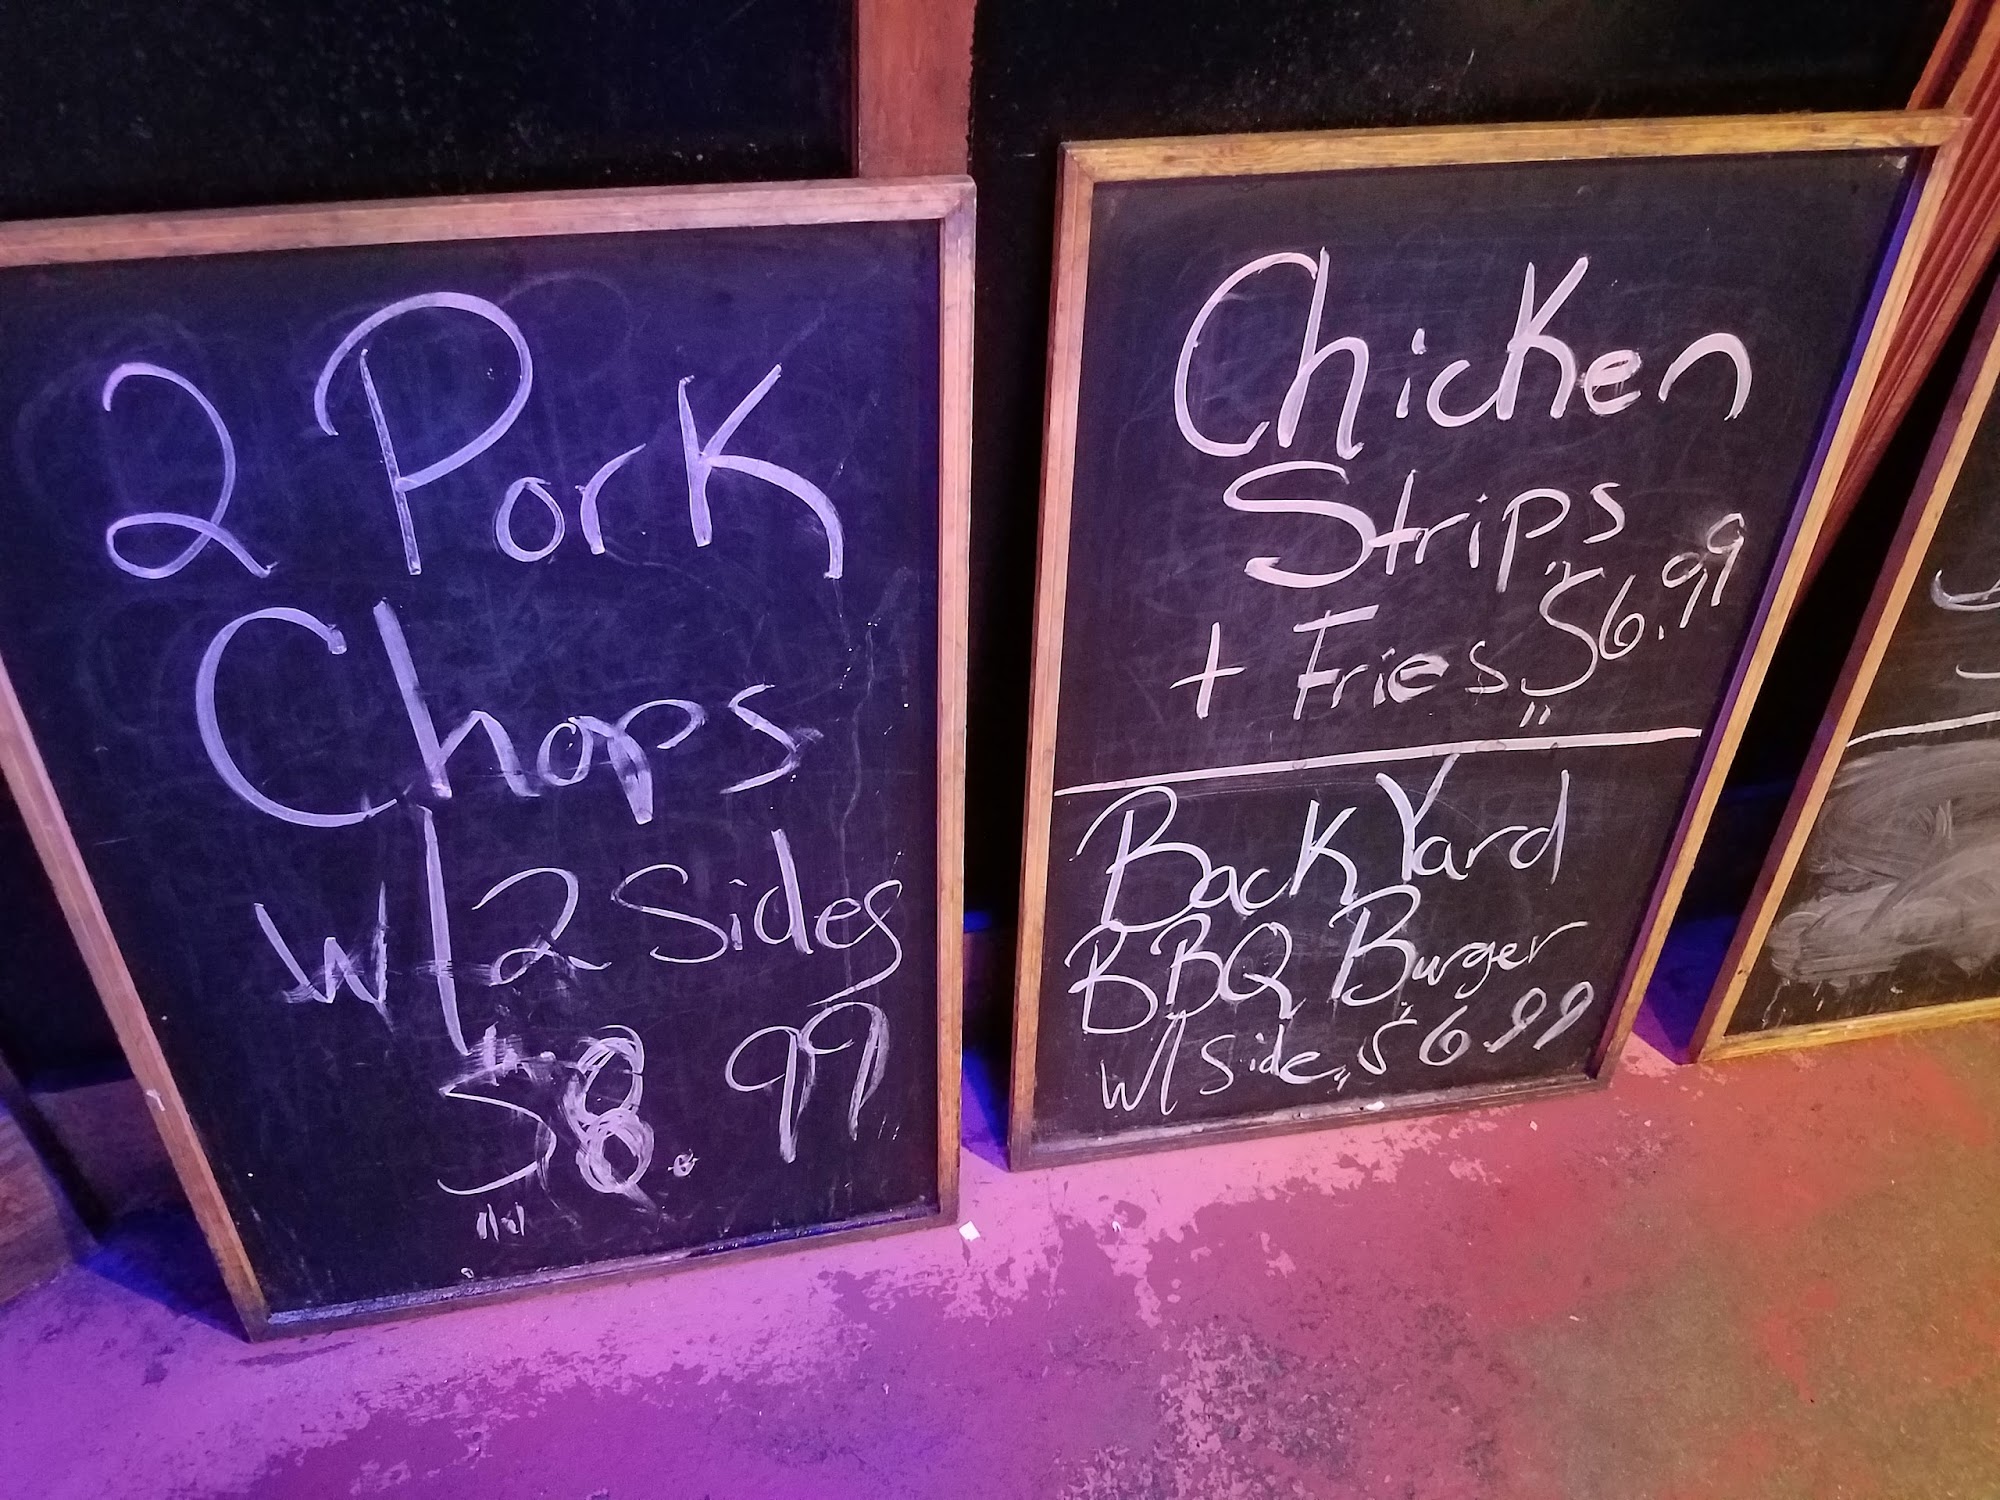 2 Pork
Chops
w/2 Sides
$8.99
Chicken
Strips
+ Fries $6.99
BackYard
BBQ Burger
w/ Side $6.99